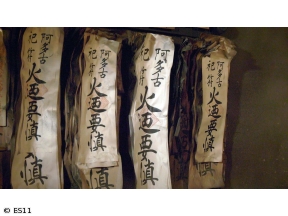 阿多古
祀符
火迺要慎
阿多古
祀符
火迺要慎
阿多古
祀符
火迺要慎
阿多古
祀符
火迺要慎
慎
© ES11